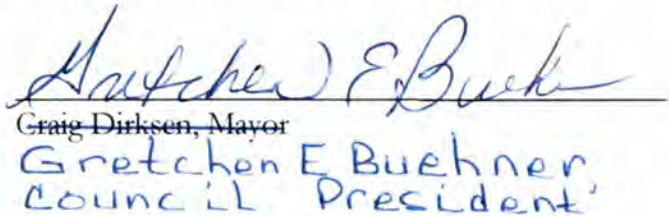 Gretchen E Buehn
Craig Dirksen, Mayor
Gretchen E Buehner,
Council President